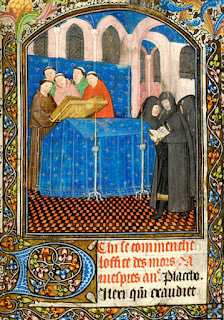 Chi se commenche
loffice des mors. ⁊ a
vespres an. Placebo.
DIlexi qm exaudiet